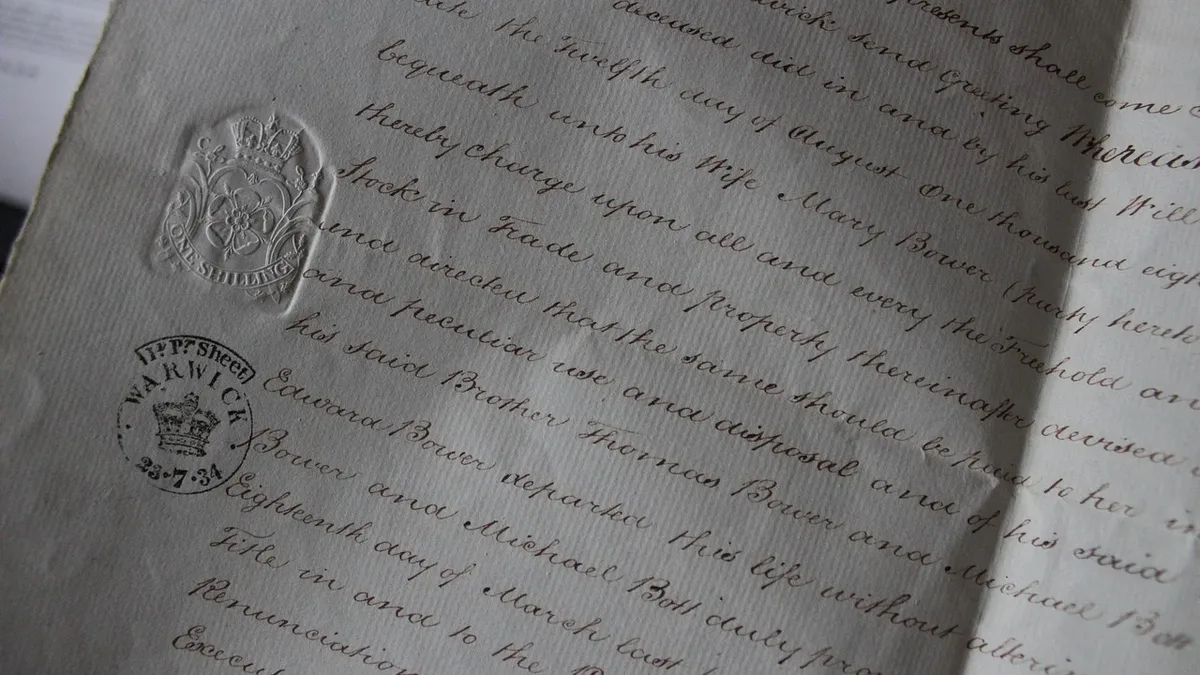 presents shall come
wick send Greeting Whereas
deceased did in and by his last Will
the Twelfth day of August One thousand eigh
bequeath unto his Wife Mary Bower (party hereto
thereby charge upon all and every the Freehold an
Stock in Trade and property thereinafter devised
and directed that the same should be paid to her in
and peculiar use and disposal and of his said
his said Brother Thomas Bower and Michael Bott
Edward Bower departed this life without alterin
Bower and Michael Bott duly pro
Eighteenth day of March last
Title in and to the
Renunciation
Execut
ONE SHILLING
Pr. Pr. Sheet
WARWICK
23.7.34